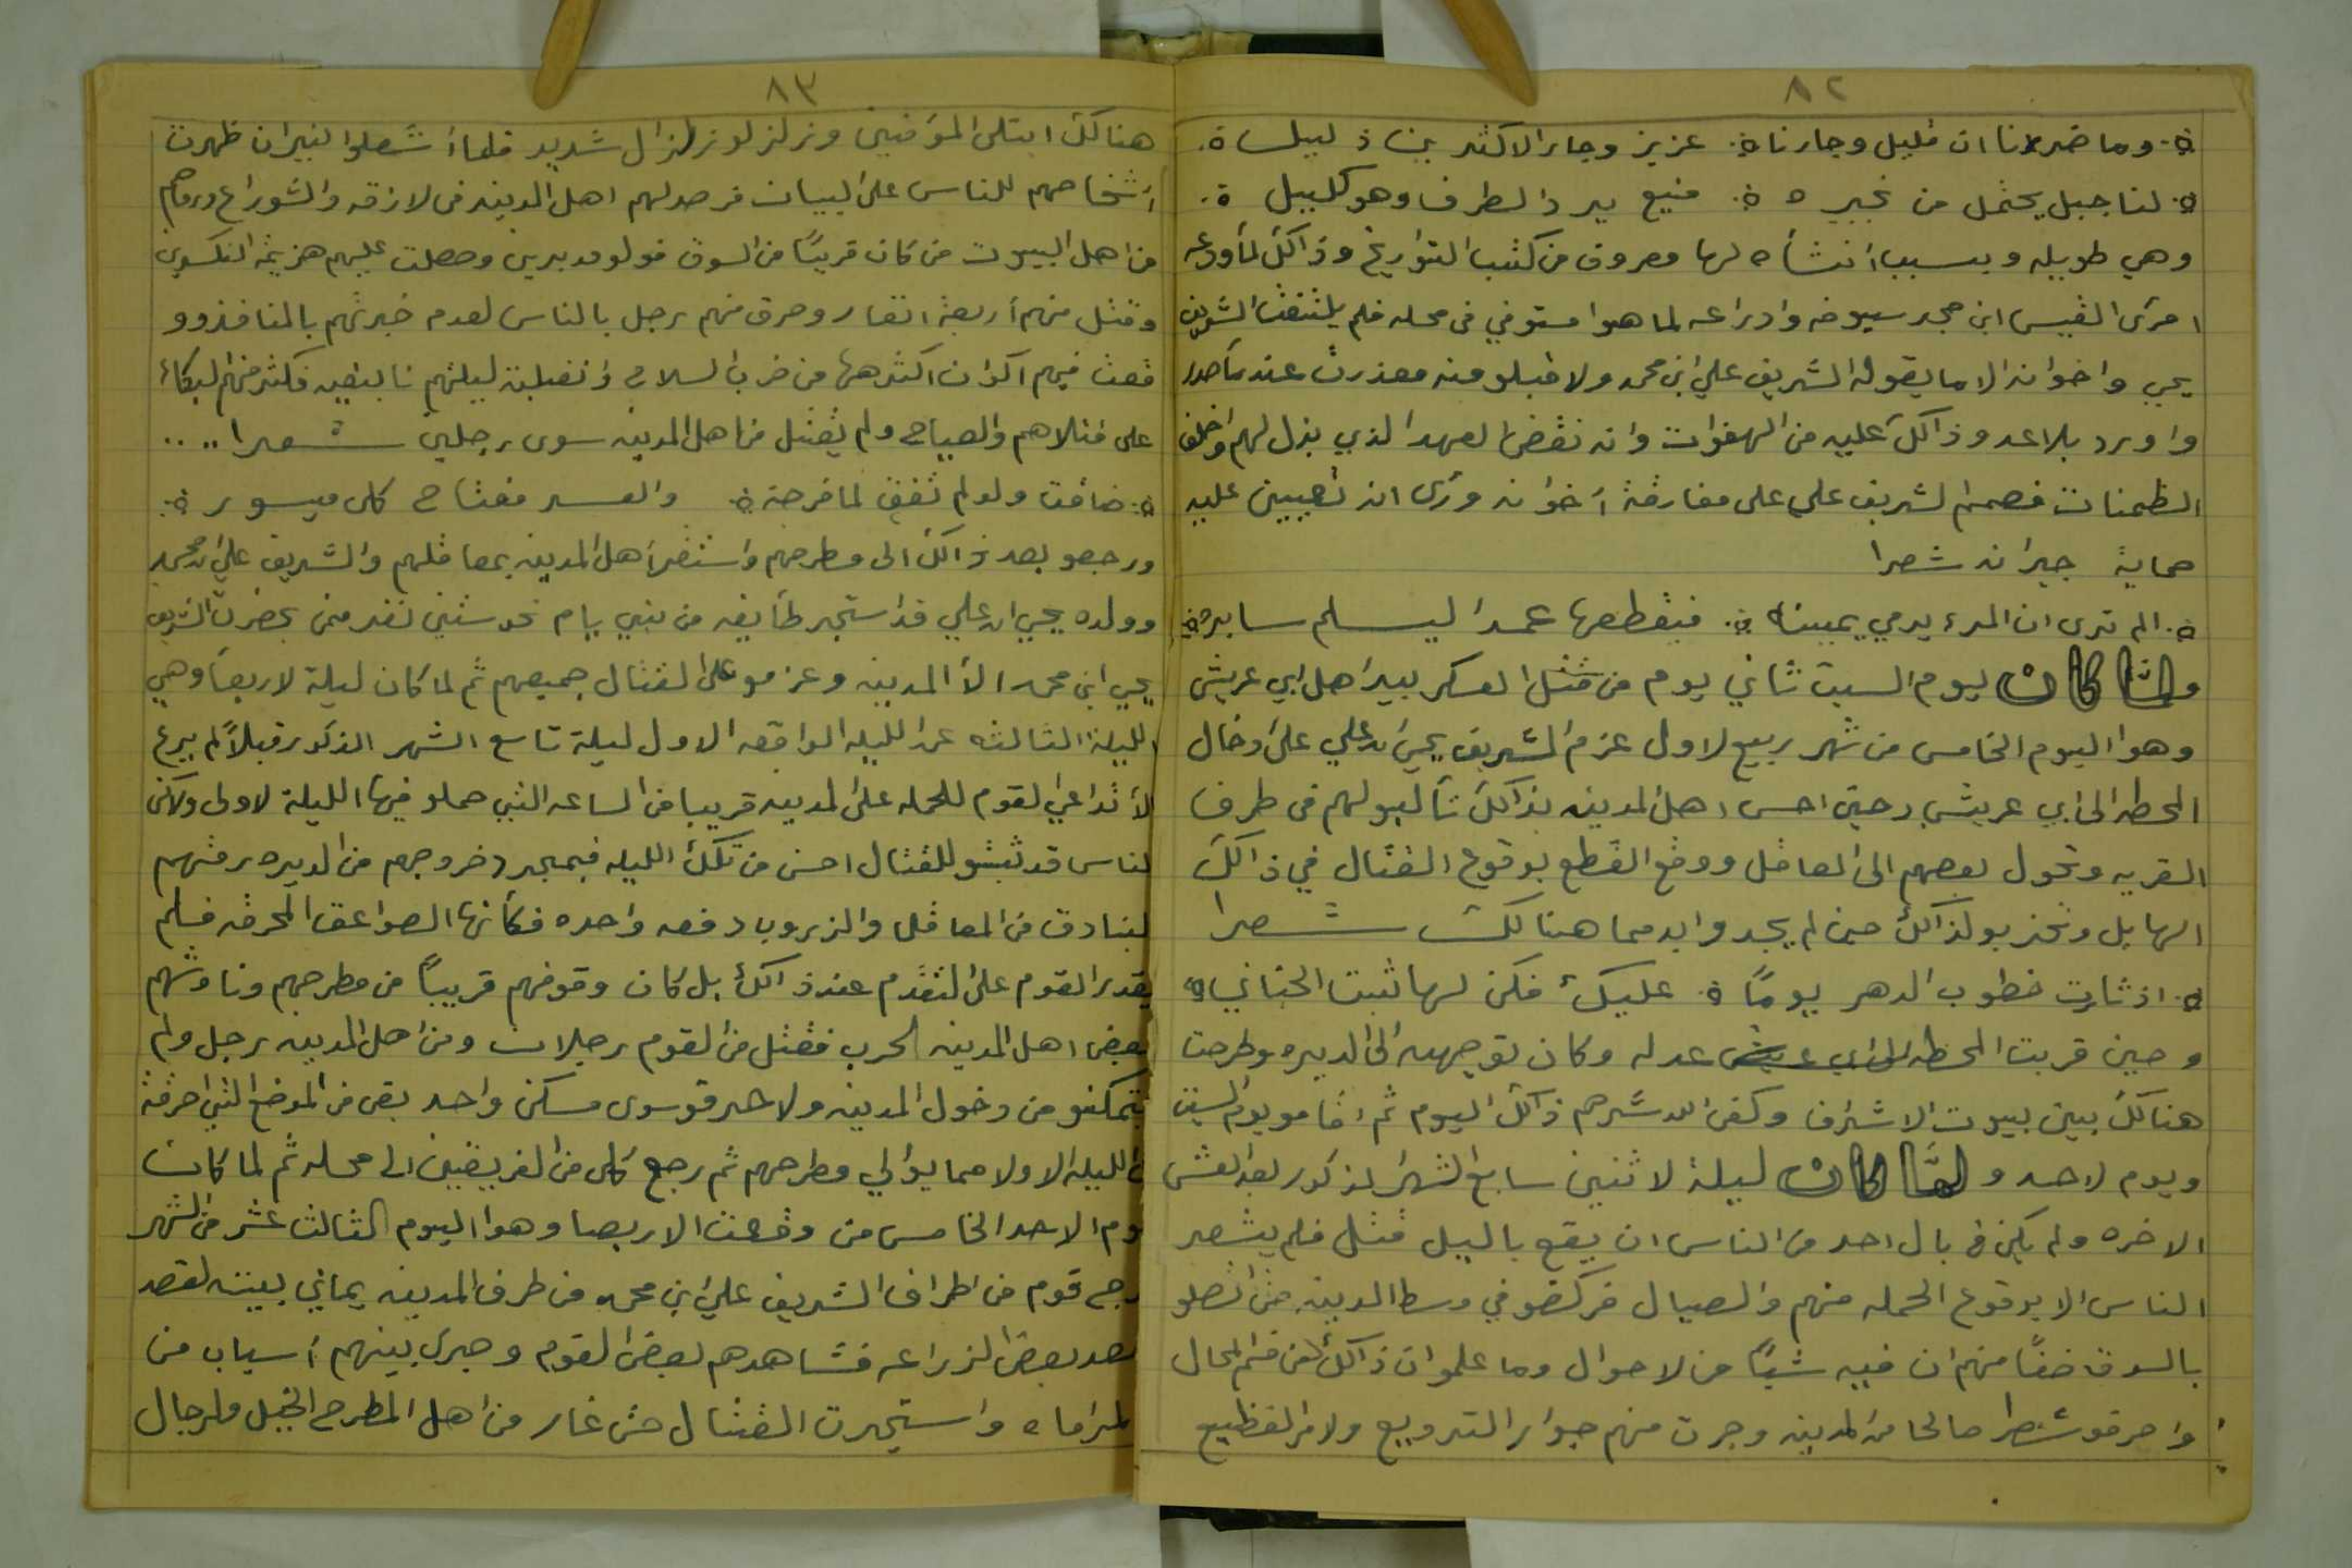 ٨٢
وما ضرنا ان قليل وجارنا عزيز وجار الاكثرين ذليل
لنا جبل يحتمل من نجيره منيع يرد الطرف وهو كليل
وهي طويله وبسبب انشأه لها معروف من كتب التواريخ وذالك لمأودعه
امرى القيس ابن حجر سيوفه وادراعه لما هوا مستوفي في محله فلم يلتفت الشريف
يحي واخوانه الا ما يقوله الشريف علي ابن محمد ولا قبلو منه معذرت عند مأصدر
واورد بلاعد وذالك عليه من الهفوات وانه نقض العهد الذي بذل لهم واخلف
الظمنات فصمم الشريف علي على مفارقة أخوانه ورأى انه تعيين عليه
حماية جيرانه شعرا
الم ترى ان المرء يرمي يمينه فيقطعها عمدا ليسلم سايره
ولما كان يوم السبت ثاني يوم من قتل العسكر بيد اهل ابي عريش
وهوا اليوم الخامس من شهر ربيع لاول عزم الشريف يحي ابن علي على ادخال
المحطه الى ابي عريش وحين احس اهل المدينه بذالك تألبو لهم في طرف
القريه وتحول بعضهم الى المعاقل ووقع القطع بوقوع القتال في ذالك
الهايل وتحزبو لذالك حين لم يجدوا بد مما هنالك شعرا
اذ ثارت خطوب الدهر يوماً عليك فكن لها ثبت الجنان
وحين قربت المحطه الى ابي عريش عدله وكان توجهه الى الديره وطرحت
هنالك بين بيوت الاشراف وكفى الله شرهم ذالك اليوم ثم اقامو يوم السبت
ويوم لاحد ولما كان ليلة لاثنين سابع الشهر المذكور بعد العشى
الاخره ولم يكن في بال احد من الناس ان يقع بالليل قتل فلم يشعر
الناس الا بوقوع الحمله منهم والصيال فركضو في وسط المدينه حتى اتصلو
بالسوق ضناً منهم ان فيه شيأ من لاحوال وما علموا ان ذالك من قسم المحال
واحرقو شطرا صالحا من المدينه وجرت منهم جواير الترويع ولامر الفظيع
٨٣
هنالك ابتلى المؤمنين وزلزلو زلزال شديد فلما أشعلوا النيران ظهرت
أشخاصهم للناس على البيان فرصد لهم اهل المدينه في لازقه والشوراع ورماهم
من اهل البيوت من كان قريباً من السوق فولو مدبرين وحصلت عليهم هزيمة النكسرين
وقتل منهم أربعة انفار وحرق منهم رجل بالناس لعدم خبرتهم بالمنافذ وو
قعت فيهم اكوان اكثرها من ضرب السلاح وانقلبة ليلتهم نابغيه فكثر منهم البكاء
على قتلاهم والصياح ولم يقتل من اهل المدينه سوى رجلين شعرا ..
ضاقت ولو لم تضق لما فرجة والعسر مفتاح كل ميسور
ورجعو بعد ذالك الى مطرحهم واستقر أهل المدينه بمعاقلهم والشريف علي ابن محمد
وولده يحي ابن علي قد استجر طأيفه من بني يام نحو ستين نفر ممن بحضرت الشريف
يحي ابن محمد الأ المدينه وعزمو على القتال جميعهم ثم لما كان ليلة لاربعا وهي
الليلة الثالثه عن الليله الواقعه الاول ليلة تاسع الشهر المذكور قبلاً لم يرع
الأ تداعي القوم للحمله على المدينه قريبا من الساعه التي حملو فيها الليلة لاولى ولاكن
لناس قد تبثتو للقتال احسن من تلك الليله فبمجرد خروجهم من الديره رمتهم
لبنادق من المعاقل والزروب دفعه واحده فكأنها الصواعق المحرقه فلم
يقدر القوم على التقدم عند ذالك بل كان وقوفهم قريباً من مطرحهم وناوشهم
بعض اهل المدينه الحرب فقتل من القوم رجلان ومن اهل المدينه رجل ولم
يتمكنو من دخول المدينه ولاحرقو سوى مسكن واحد بقى من الموضع التي احرقة
الليله الاولا مما يوالي مطرحهم ثم رجع كل من الفريقين الى محله ثم لما كان
يوم الاحد الخامس من وقعت الاربعا وهوا اليوم الثالث عشر من الشهر
رجح قوم من اطراف الشريف علي ابن محمد من طرف المدينه يماني بيته لقصد
بعض الزراعه فشاهدهم بعض القوم وجرى بينهم أسباب من
المراماه واستجرت القتال حتى غار من اهل المطرح الخيل والرجال